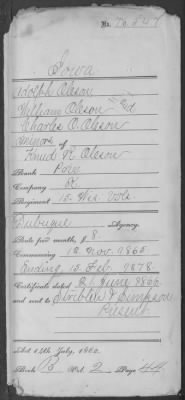 No. 70.547
Iowa
Adolph Oleson
William Oleson Gd
Charles O. Oleson
minors of
Knud R. Oleson
Rank Priv
Company K
Regiment 15. Wis. Vols
Dubuque Agency.
Rate per month, $ 8
Commencing 12 Nov. 1865
Ending, 15 Feb. 1878.
Certificate dated 26 June 1866
and sent to Stribling & Simpson
Present
Act 14th July, 1862.
Book B Vol. 2 Page 44